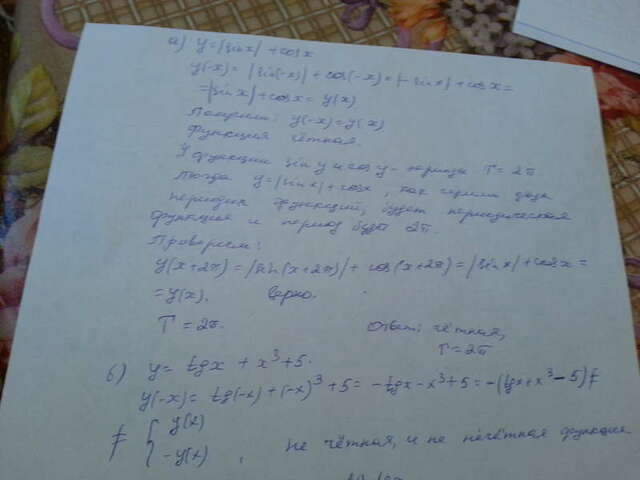 а) y=|sin x| + cos x
y(-x) = |sin(-x)| + cos(-x) = |-sin x| + cos x =
= |sin x| + cos x = y(x)
Получили: y(-x) = y(x)
функция чётная.
У функции sin y и cos y - период T = 2π.
Тогда y = |sin x| + cos x, как сумма двух
функций, будет периодическая
функция и период будет 2π.
Проверяем:
y(x+2π) = |sin(x+2π)| + cos(x+2π) = |sin x| + cos x =
= y(x). Верно.
T = 2π. Ответ: чётная,
T = 2π
б) y = tg x + x³ + 5.
y(-x) = tg(-x) + (-x)³ + 5 = -tg x - x³ + 5 = -(tg x + x³ - 5) ≠
≠ { y(x)
-y(x) , не чётная, и не нечётная функция